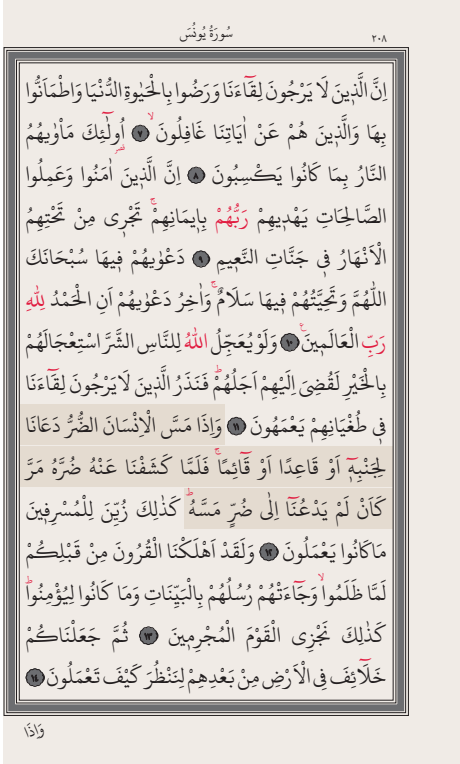 سُورَةُ يُونُسَ ٢٠٨
اِنَّ الَّذٖينَ لَا يَرْجُونَ لِقَٓاءَنَا وَرَضُوا بِالْحَيٰوةِ الدُّنْيَا وَاطْمَاَنُّوا
بِهَا وَالَّذٖينَ هُمْ عَنْ اٰيَاتِنَا غَافِلُونَۙ ٧ اُو۬لٰٓئِكَ مَاْوٰيهُمُ
النَّارُ بِمَا كَانُوا يَكْسِبُونَ ٨ اِنَّ الَّذٖينَ اٰمَنُوا وَعَمِلُوا
الصَّالِحَاتِ يَهْدٖيهِمْ رَبُّهُمْ بِاٖيمَانِهِمْۚ تَجْرٖى مِنْ تَحْتِهِمُ
الْاَنْهَارُ فٖى جَنَّاتِ النَّعٖيمِ ٩ دَعْوٰيهُمْ فٖيهَا سُبْحَانَكَ
اللّٰهُمَّ وَتَحِيَّتُهُمْ فٖيهَا سَلَامٌۚ وَاٰخِرُ دَعْوٰيهُمْ اَنِ الْحَمْدُ لِلّٰهِ
رَبِّ الْعَالَمٖينَࣖ ١٠ وَلَوْ يُعَجِّلُ اللّٰهُ لِلنَّاسِ الشَّرَّ اسْتِعْجَالَهُمْ
بِالْخَيْرِ لَقُضِىَ اِلَيْهِمْ اَجَلُهُمْؕ فَنَذَرُ الَّذٖينَ لَا يَرْجُونَ لِقَٓاءَنَا
فٖى طُغْيَانِهِمْ يَعْمَهُونَ ١١ وَاِذَا مَسَّ الْاِنْسَانَ الضُّرُّ دَعَانَا
لِجَنْبِهٖٓ اَوْ قَاعِدًا اَوْ قَٓائِمًاۚ فَلَمَّا كَشَفْنَا عَنْهُ ضُرَّهُ مَرَّ
كَاَنْ لَمْ يَدْعُنَٓا اِلٰى ضُرٍّ مَسَّهُؕ كَذٰلِكَ زُيِّنَ لِلْمُسْرِفٖينَ
مَا كَانُوا يَعْمَلُونَ ١٢ وَلَقَدْ اَهْلَكْنَا الْقُرُونَ مِنْ قَبْلِكُمْ
لَمَّا ظَلَمُواۙ وَجَٓاءَتْهُمْ رُسُلُهُمْ بِالْبَيِّنَاتِ وَمَا كَانُوا لِيُؤْمِنُواؕ
كَذٰلِكَ نَجْزِى الْقَوْمَ الْمُجْرِمٖينَ ١٣ ثُمَّ جَعَلْنَاكُمْ
خَلَٓائِفَ فِى الْاَرْضِ مِنْ بَعْدِهِمْ لِنَنْظُرَ كَيْفَ تَعْمَلُونَ ١٤
وَاِذَا